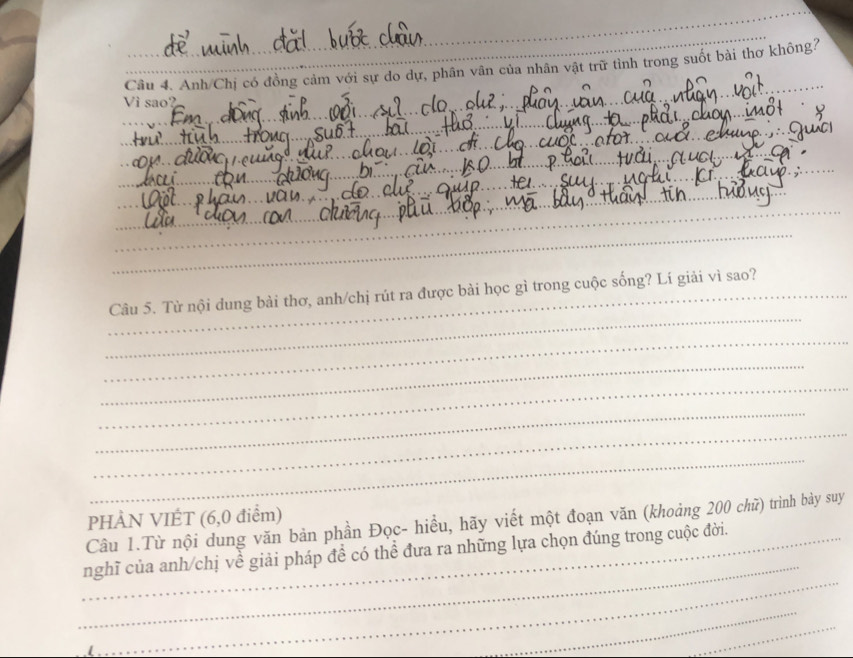 để mình đặt bước chân
Câu 4. Anh/Chị có đồng cảm với sự do dự, phân vân của nhân vật trữ tình trong suốt bài thơ không?
Vì sao?
Em đồng tình với sự do dự, phân vân của nhân vật
trữ tình trong suốt bài thơ vì chúng ta phải chọn một
con đường, cũng như chọn lối đi cho cuộc đời của chúng, giữa
hai con đường bí ẩn ko bt phải
phân vân, do dự giúp ta suy nghĩ kĩ càng,
lựa chọn con đường phù hợp, mà bản thân tin tưởng
Câu 5. Từ nội dung bài thơ, anh/chị rút ra được bài học gì trong cuộc sống? Lí giải vì sao?
PHẦN VIẾT (6,0 điểm)
Câu 1.Từ nội dung văn bản phần Đọc- hiểu, hãy viết một đoạn văn (khoảng 200 chữ) trình bày suy
nghĩ của anh/chị về giải pháp để có thể đưa ra những lựa chọn đúng trong cuộc đời.